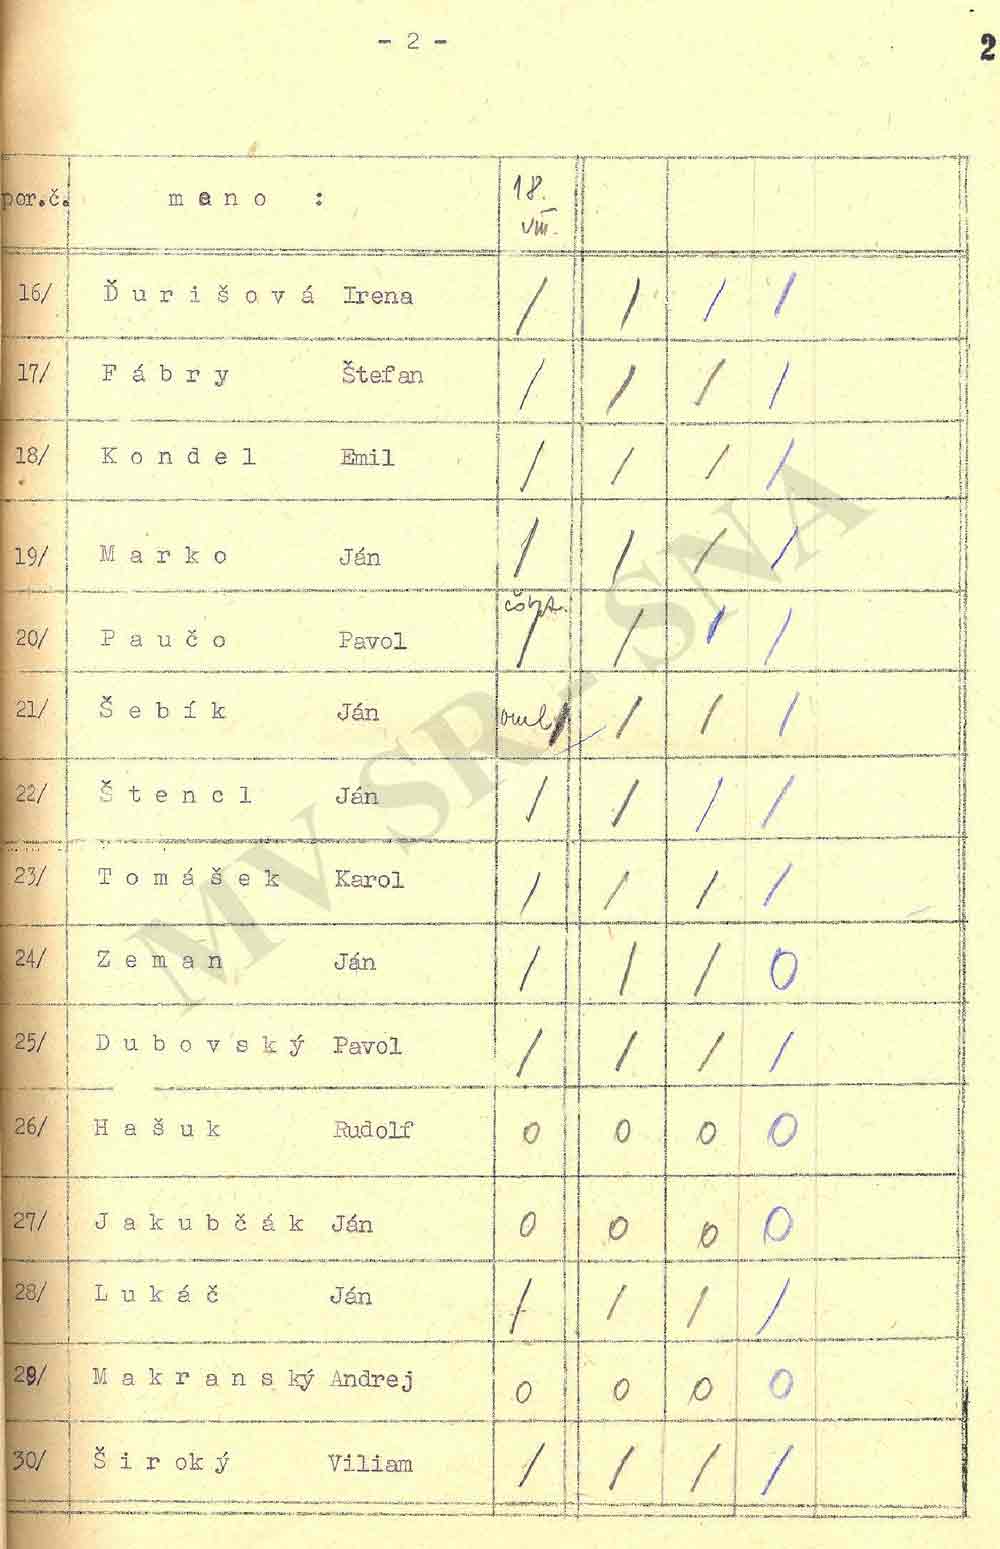 - 2 -
2
por.č. meno :  18. VIII.
16/ Ďurišová Irena / / / /
17/ Fábry Štefan / / / /
18/ Kondel Emil / / / /
19/ Marko Ján / / / /
20/ Paučo Pavol / / / /
21/ Šebík Ján / / / /
22/ Štencl Ján / / / /
23/ Tomášek Karol / / / /
24/ Zeman Ján / / / 0
25/ Dubovský Pavol / / / /
26/ Hašuk Rudolf 0 0 0 0
27/ Jakubčák Ján 0 0 0 0
28/ Lukáč Ján / / / /
29/ Makranský Andrej 0 0 0 0
30/ Široký Viliam / / / /
MV SR - SNA